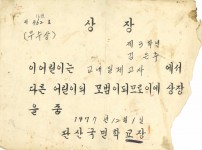 상 장
(우수상)
제 3 학년
김
이 어린이는 교내 경제교사 에서
다른 어린이의 모범이 되므로 이에 상장
을 줌
1977년 12월 1일
완산국민학교장